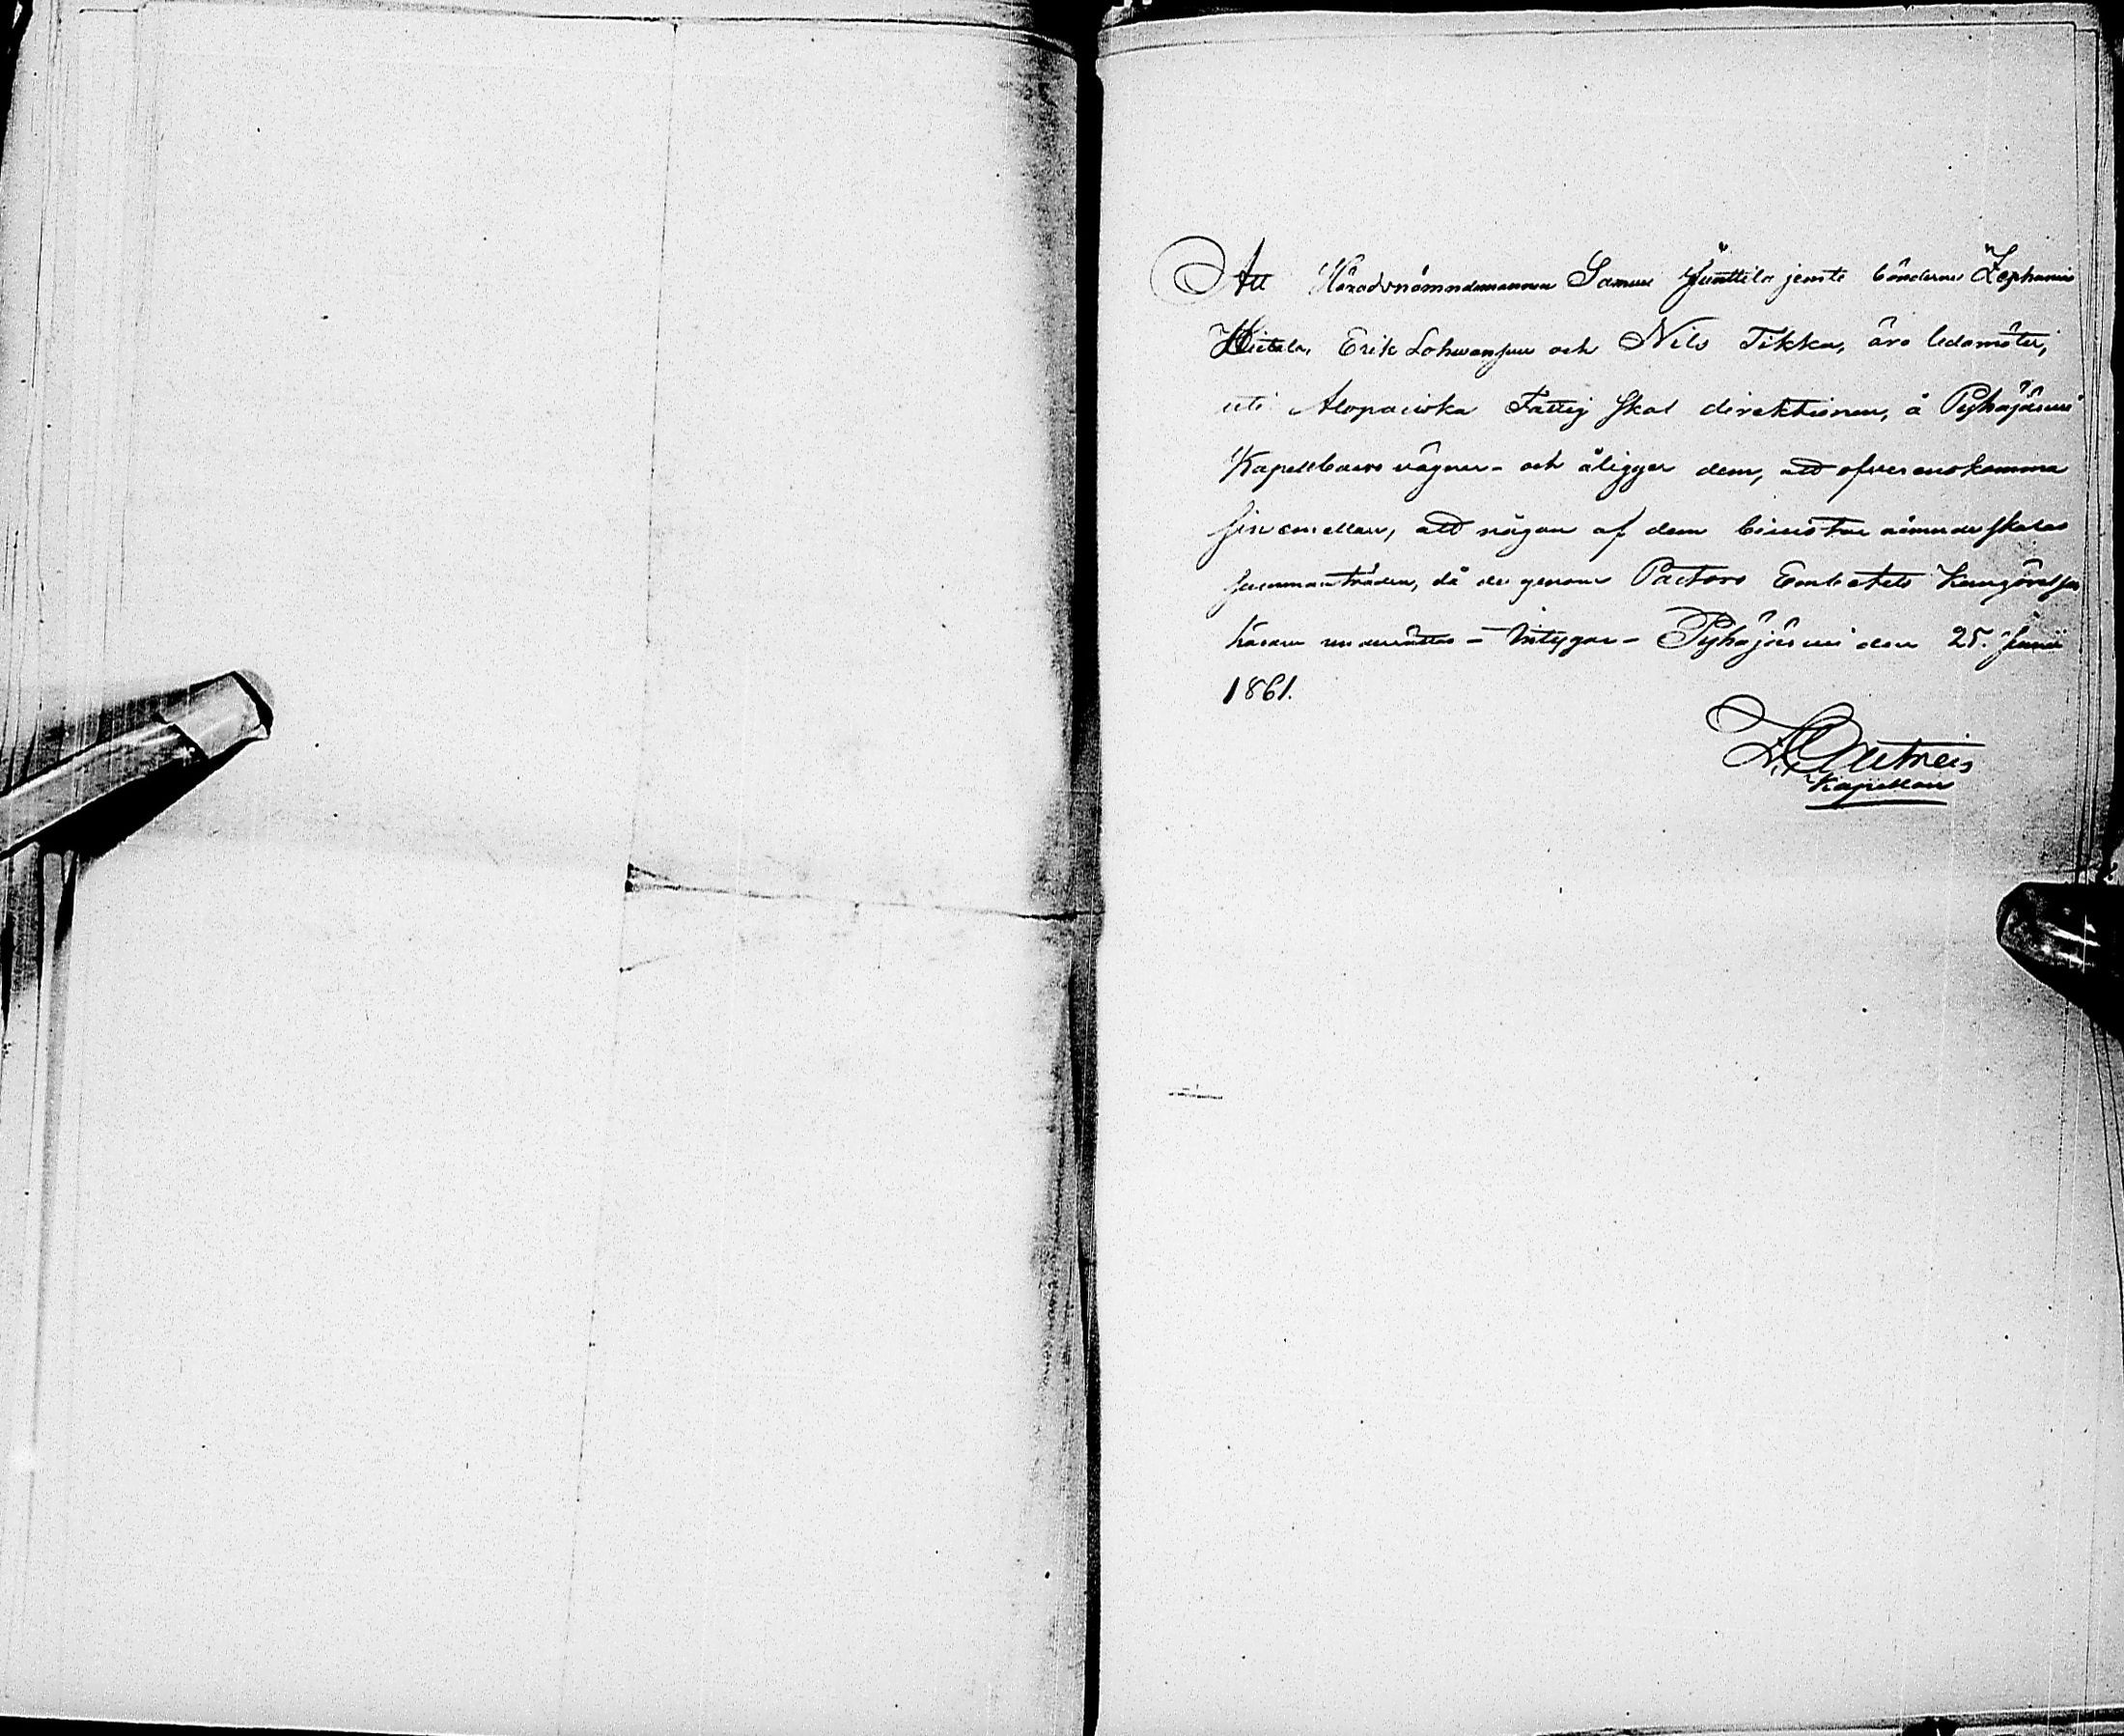 Att Häradsnämndemannen Samuel Junttila jemte bönderne Zephanias
Hietala, Erik Lohwansuu och Nils Tikka, äro ledamöter,
uti Alopaiwka Fattig Skol direktionen, å Pyhäjärwi
Kapellboers vägnar - och åligger dem, att öfverenskomma
sin emellan, att någon af dem åtminstone
sammanträden, då de genom Pastors Embetets Kungörelser
härom underrättas - Intygar - Pyhäjärwi den 25. Junii
1861.
Kapellan